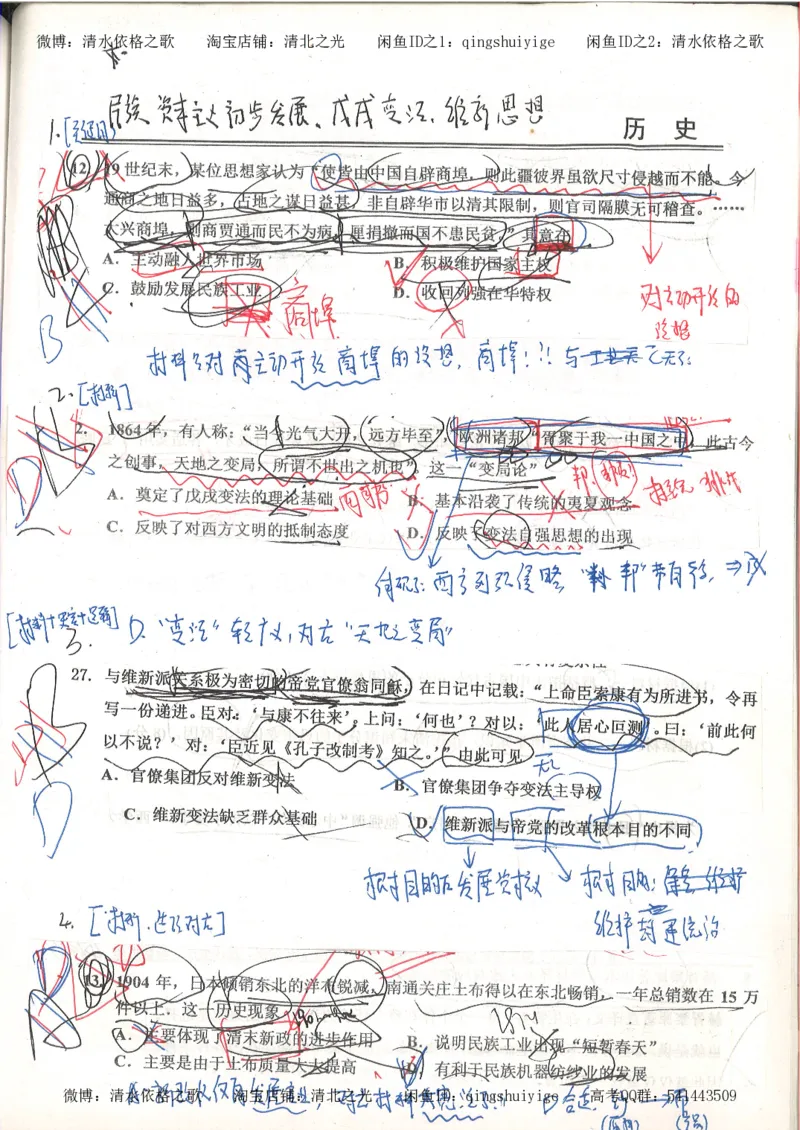 微博：清水依格之歌 淘宝店铺：清北之光 闲鱼ID之1：qingshuiyige 闲鱼ID之2：清水依格之歌
民族资本主义初步发展、戊戌变法、维新思想
1.
历 史
12. 19世纪末，某位思想家认为“使皆由中国自辟商埠，则此疆彼界虽欲尺寸侵越而不能。今
通商之地日益多，占地之谋日益甚，非自辟华市以清其限制，则官司隔膜无可稽查。……
大兴商埠，则商贾通而民不为病，厘捐撤而国不患民贫。”其意在
A．主动融入世界市场 B．积极维护国家主权
C．鼓励发展民族工业 D．收回列强在华特权
商埠
对主动开放的
设想
B
材料只对商主动开放商埠的设想，商埠！！与工业无关
2. [材料]
2. 1864年，有人称：“当今光气大开，远方毕至”，“欧洲诸邦”“胥聚于我一中国之中，此古今
之创事，天地之变局，所谓不世出之机也”。这一“变局论”
A．奠定了戊戌变法的理论基础 B．基本沿袭了传统的夷夏观念
C．反映了对西方文明的抵制态度 D．反映了变法自强思想的出现
D
体现了西方列强侵略
3.
D. “变法”
“天地之变局”
27. 与维新派关系极为密切的帝党官僚翁同龢，在日记中记载：“上命臣索康有为所进书，令再
写一份递进。臣对：‘与康不往来’。上问：‘何也’？对以：‘此人居心叵测’。曰：‘前此何
以不说？’对：‘臣近见《孔子改制考》知之。’”由此可见
A．官僚集团反对维新变法 B．官僚集团争夺变法主导权
C．维新变法缺乏群众基础 D．维新派与帝党的改革根本目的不同
D
根本目的在发展资本主义 根本目的：
维护封建统治
4.
13. 1904年，日本倾销东北的洋布锐减，南通关庄土布得以在东北畅销，一年总销数在15万
件以上。这一历史现象
A．主要体现了清末新政的进步作用 B．说明民族工业出现“短暂春天”
C．主要是由于土布质量大大提高 D．有利于民族机器纺纱业的发展
微博：清水依格之歌 淘宝店铺：清北之光 闲鱼ID：qingshuiyige 高考QQ群：541443509